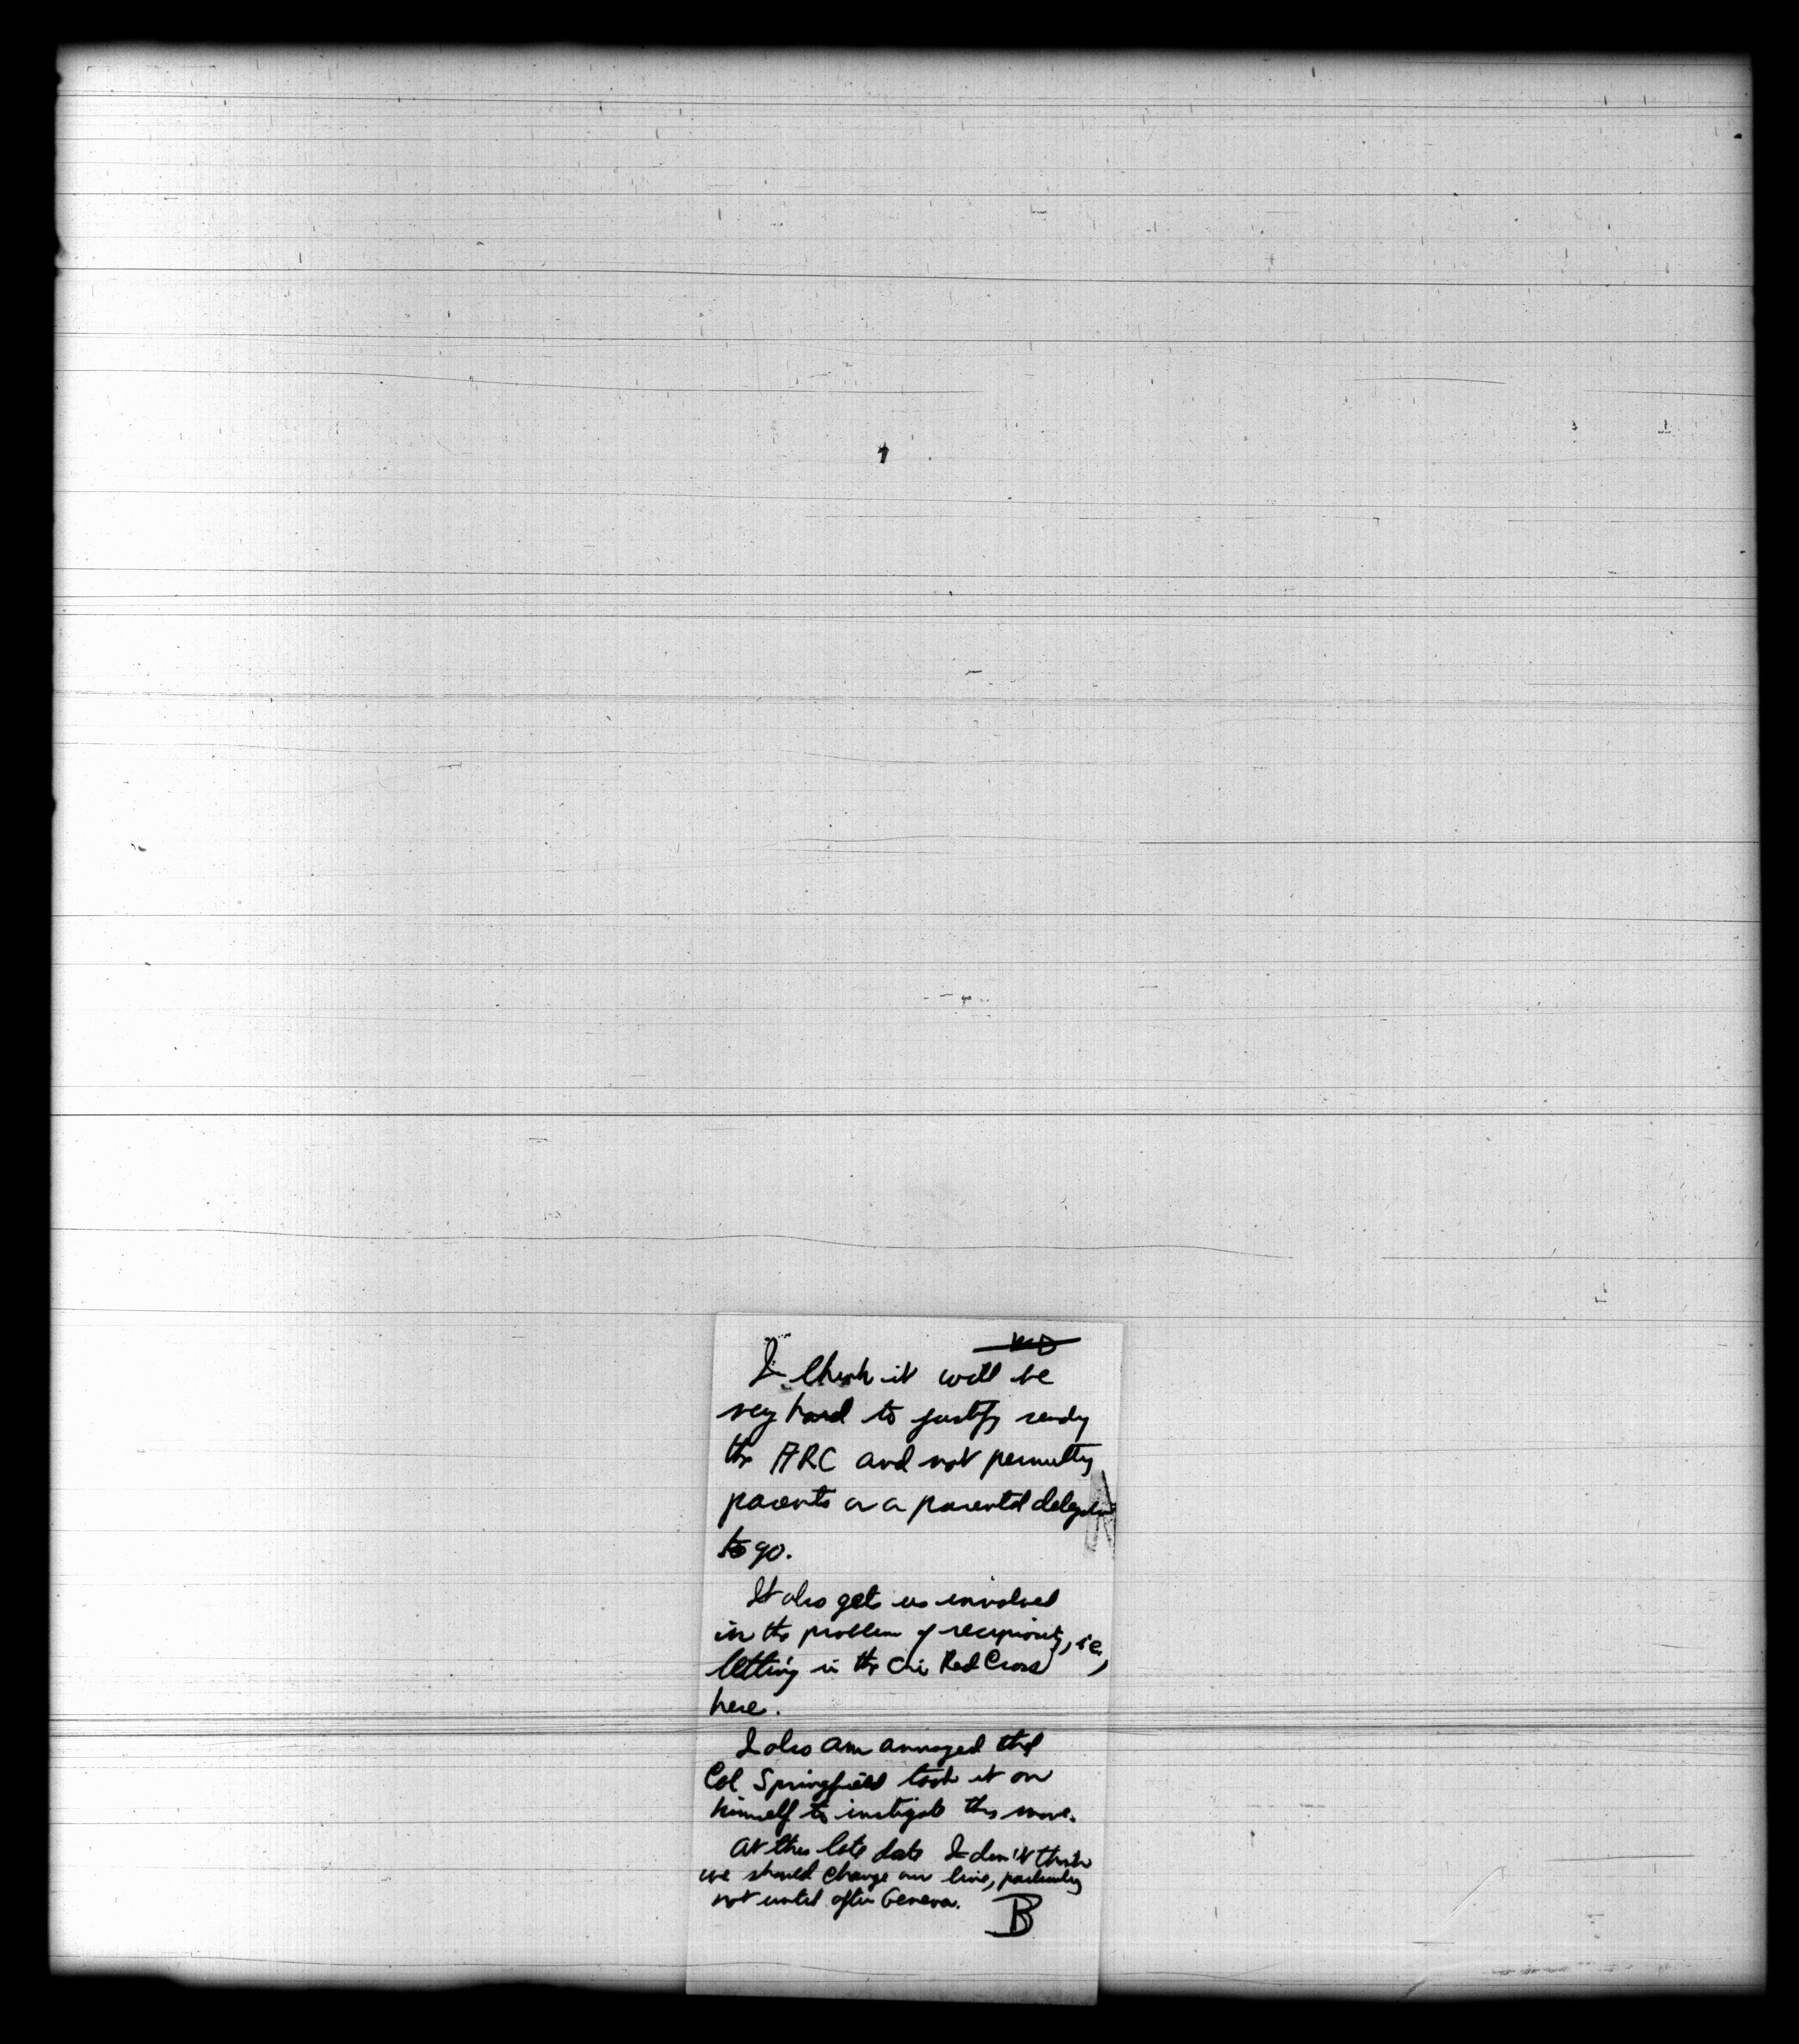 I think it will be
very hard to justify sending
the ARC and not permitting
parents or a parental delegation
to go.
It also gets us involved
in the problem of reciprocity, i.e.,
letting in the Chi Red Cross
here.
I also am annoyed that
Col Springfield took it on
himself to instigate this move.
At this late date I don't think
we should change our line, particularly
not until after Geneva.
B